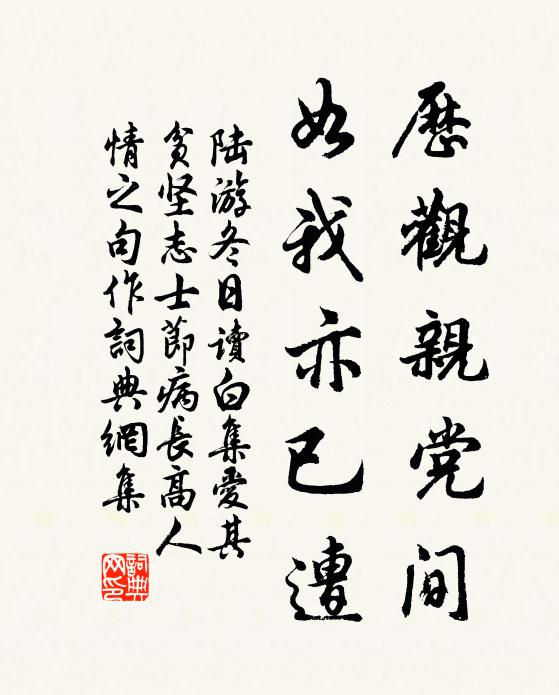 歷觀親党間
如我亦已遭
陆游冬日讀白集愛其
貧坚志士節病長高人
情之句作詞典網集
詞典
网印